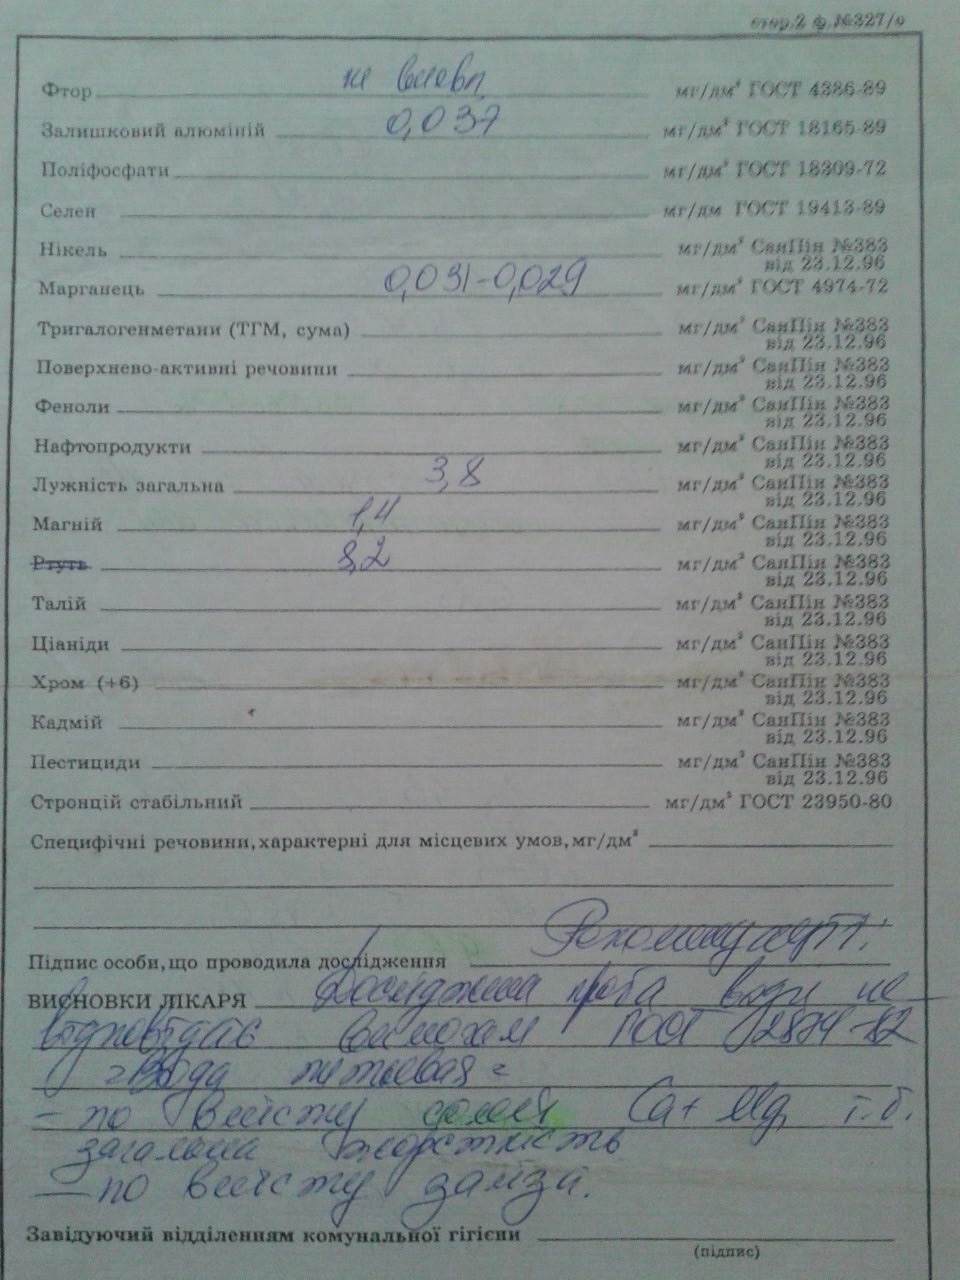 стор.2 ф.№327/о
Фтор не виявл. мг/дм³ ГОСТ 4386-89
Залишковий алюміній 0,037 мг/дм³ ГОСТ 18165-89
Поліфосфати мг/дм³ ГОСТ 18309-72
Селен мг/дм ГОСТ 19413-89
Нікель мг/дм³ СанПін №383
від 23.12.96
Марганець 0,031-0,029 мг/дм³ ГОСТ 4974-72
Тригалогенметани (ТГМ, сума) мг/дм³ СанПін №383
від 23.12.96
Поверхнево-активні речовини мг/дм³ СанПін №383
від 23.12.96
Феноли мг/дм³ СанПін №383
від 23.12.96
Нафтопродукти мг/дм³ СанПін №383
від 23.12.96
Лужність загальна 3,8 мг/дм³ СанПін №383
від 23.12.96
Магній 1,4 мг/дм³ СанПін №383
від 23.12.96
Ртуть 8,2 мг/дм³ СанПін №383
від 23.12.96
Талій мг/дм³ СанПін №383
від 23.12.96
Ціаніди мг/дм³ СанПін №383
від 23.12.96
Хром (+6) мг/дм³ СанПін №383
від 23.12.96
Кадмій мг/дм³ СанПін №383
від 23.12.96
Пестициди мг/дм³ СанПін №383
від 23.12.96
Стронцій стабільний мг/дм³ ГОСТ 23950-80
Специфічні речовини, характерні для місцевих умов, мг/дм³
Підпис особи, що проводила дослідження
ВИСНОВКИ ЛІКАРЯ Досліджена проба води не
відповідає вимогам ГОСТ 2874-82
"Вода питьевая"
- по вмісту солей Ca+ Mg, т.б.
загальна жорсткість
- по вмісту заліза.
Завідуючий відділенням комунальної гігієни
(підпис)